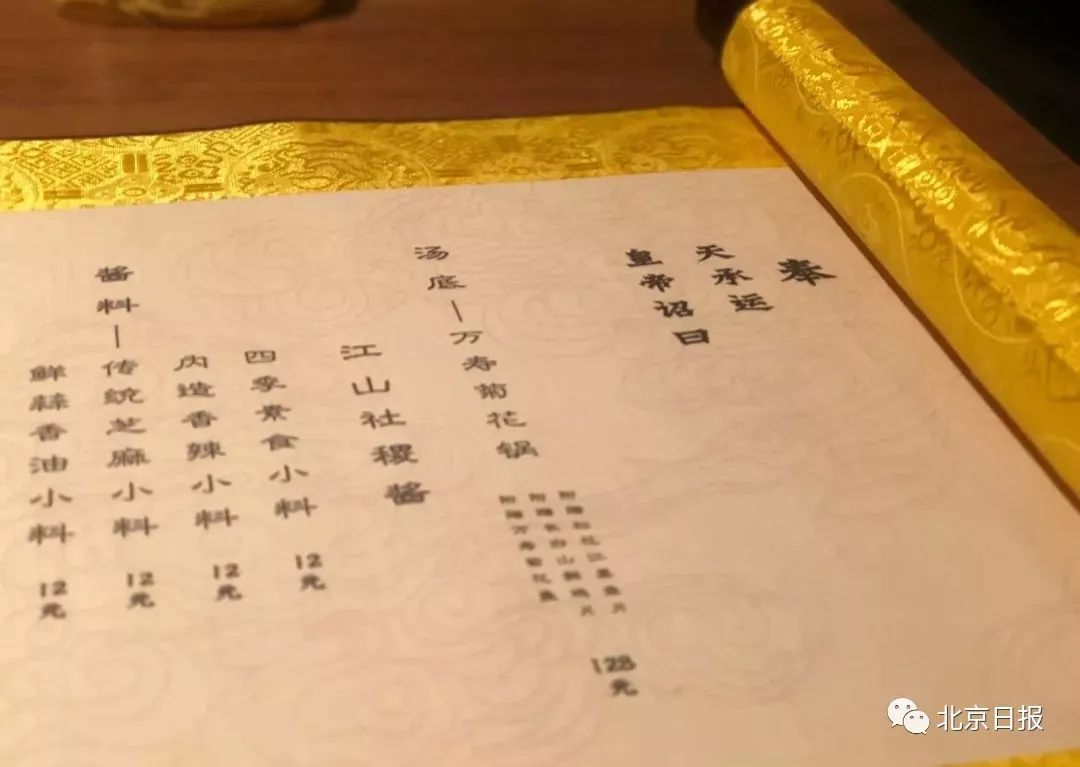 奉
天承运
皇帝诏曰
汤底—万寿菊花锅
128元
江山社稷酱
四季素食小料 12元
内造香辣小料 12元
酱料—传统芝麻小料 12元
鲜蒜香油小料 12元
北京日报